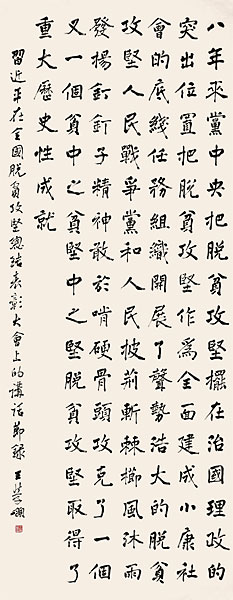 八年來黨中央把脫貧攻堅擺在治國理政的
突出位置把脫貧攻堅作爲全面建成小康社
會的底綫任務組織開展了聲勢浩大的脫貧
攻堅人民戰爭黨和人民披荊斬棘櫛風沐雨
發揚釘釘子精神敢於啃硬骨頭攻克了一個
又一個貧中之貧堅中之堅脫貧攻堅取得了
重大歷史性成就
習近平在全國脫貧攻堅總結表彰大會上的講話節錄 王